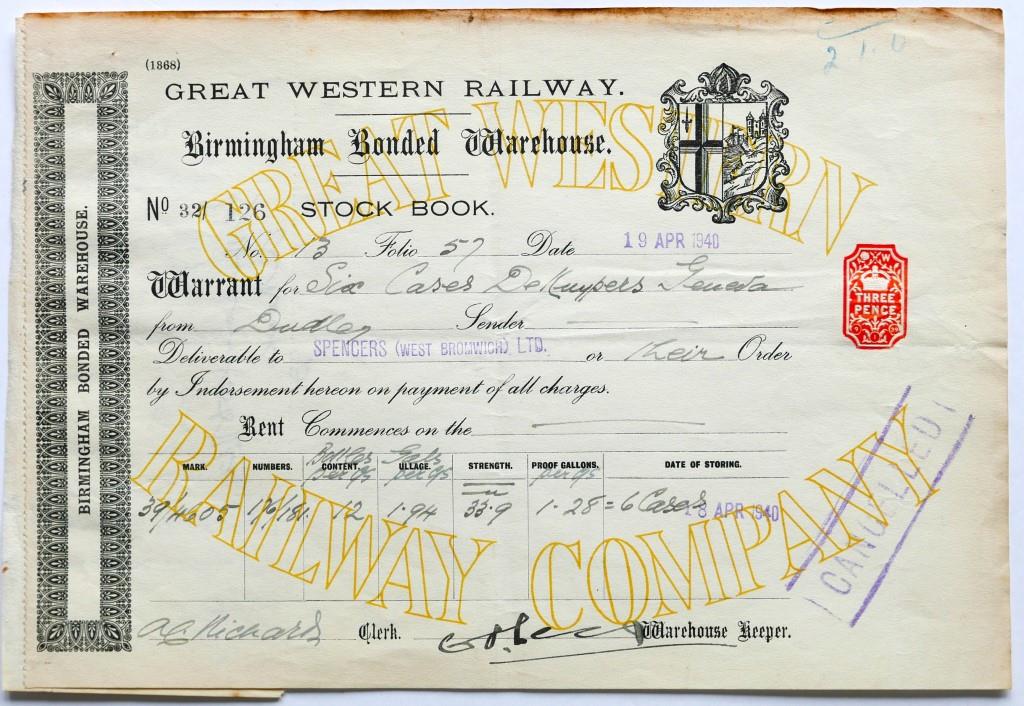 (1368)
GREAT WESTERN RAILWAY.
GREAT WESTERN
Birmingham Bonded Warehouse.
BIRMINGHAM BONDED WAREHOUSE.
No 32/ 126 STOCK BOOK.
No. 13 Folio 57 Date 19 APR 1940
Warrant for Six Cases DeKuypers Geneva
THREE PENCE
from Dudley Sender
Deliverable to SPENCERS (WEST BROMWICH) LTD. or their Order
by Indorsement hereon on payment of all charges.
Rent Commences on the
RAILWAY COMPANY
CANCELLED
MARK. NUMBERS. CONTENT. ULLAGE. STRENGTH. PROOF GALLONS. DATE OF STORING.
Bottles per cs Gals per cs per cs
39/4605 176/181 12 1.94 33.9 1.28 = 6 Cases 18 APR 1940
A.C. Richards Clerk. Warehouse Keeper.